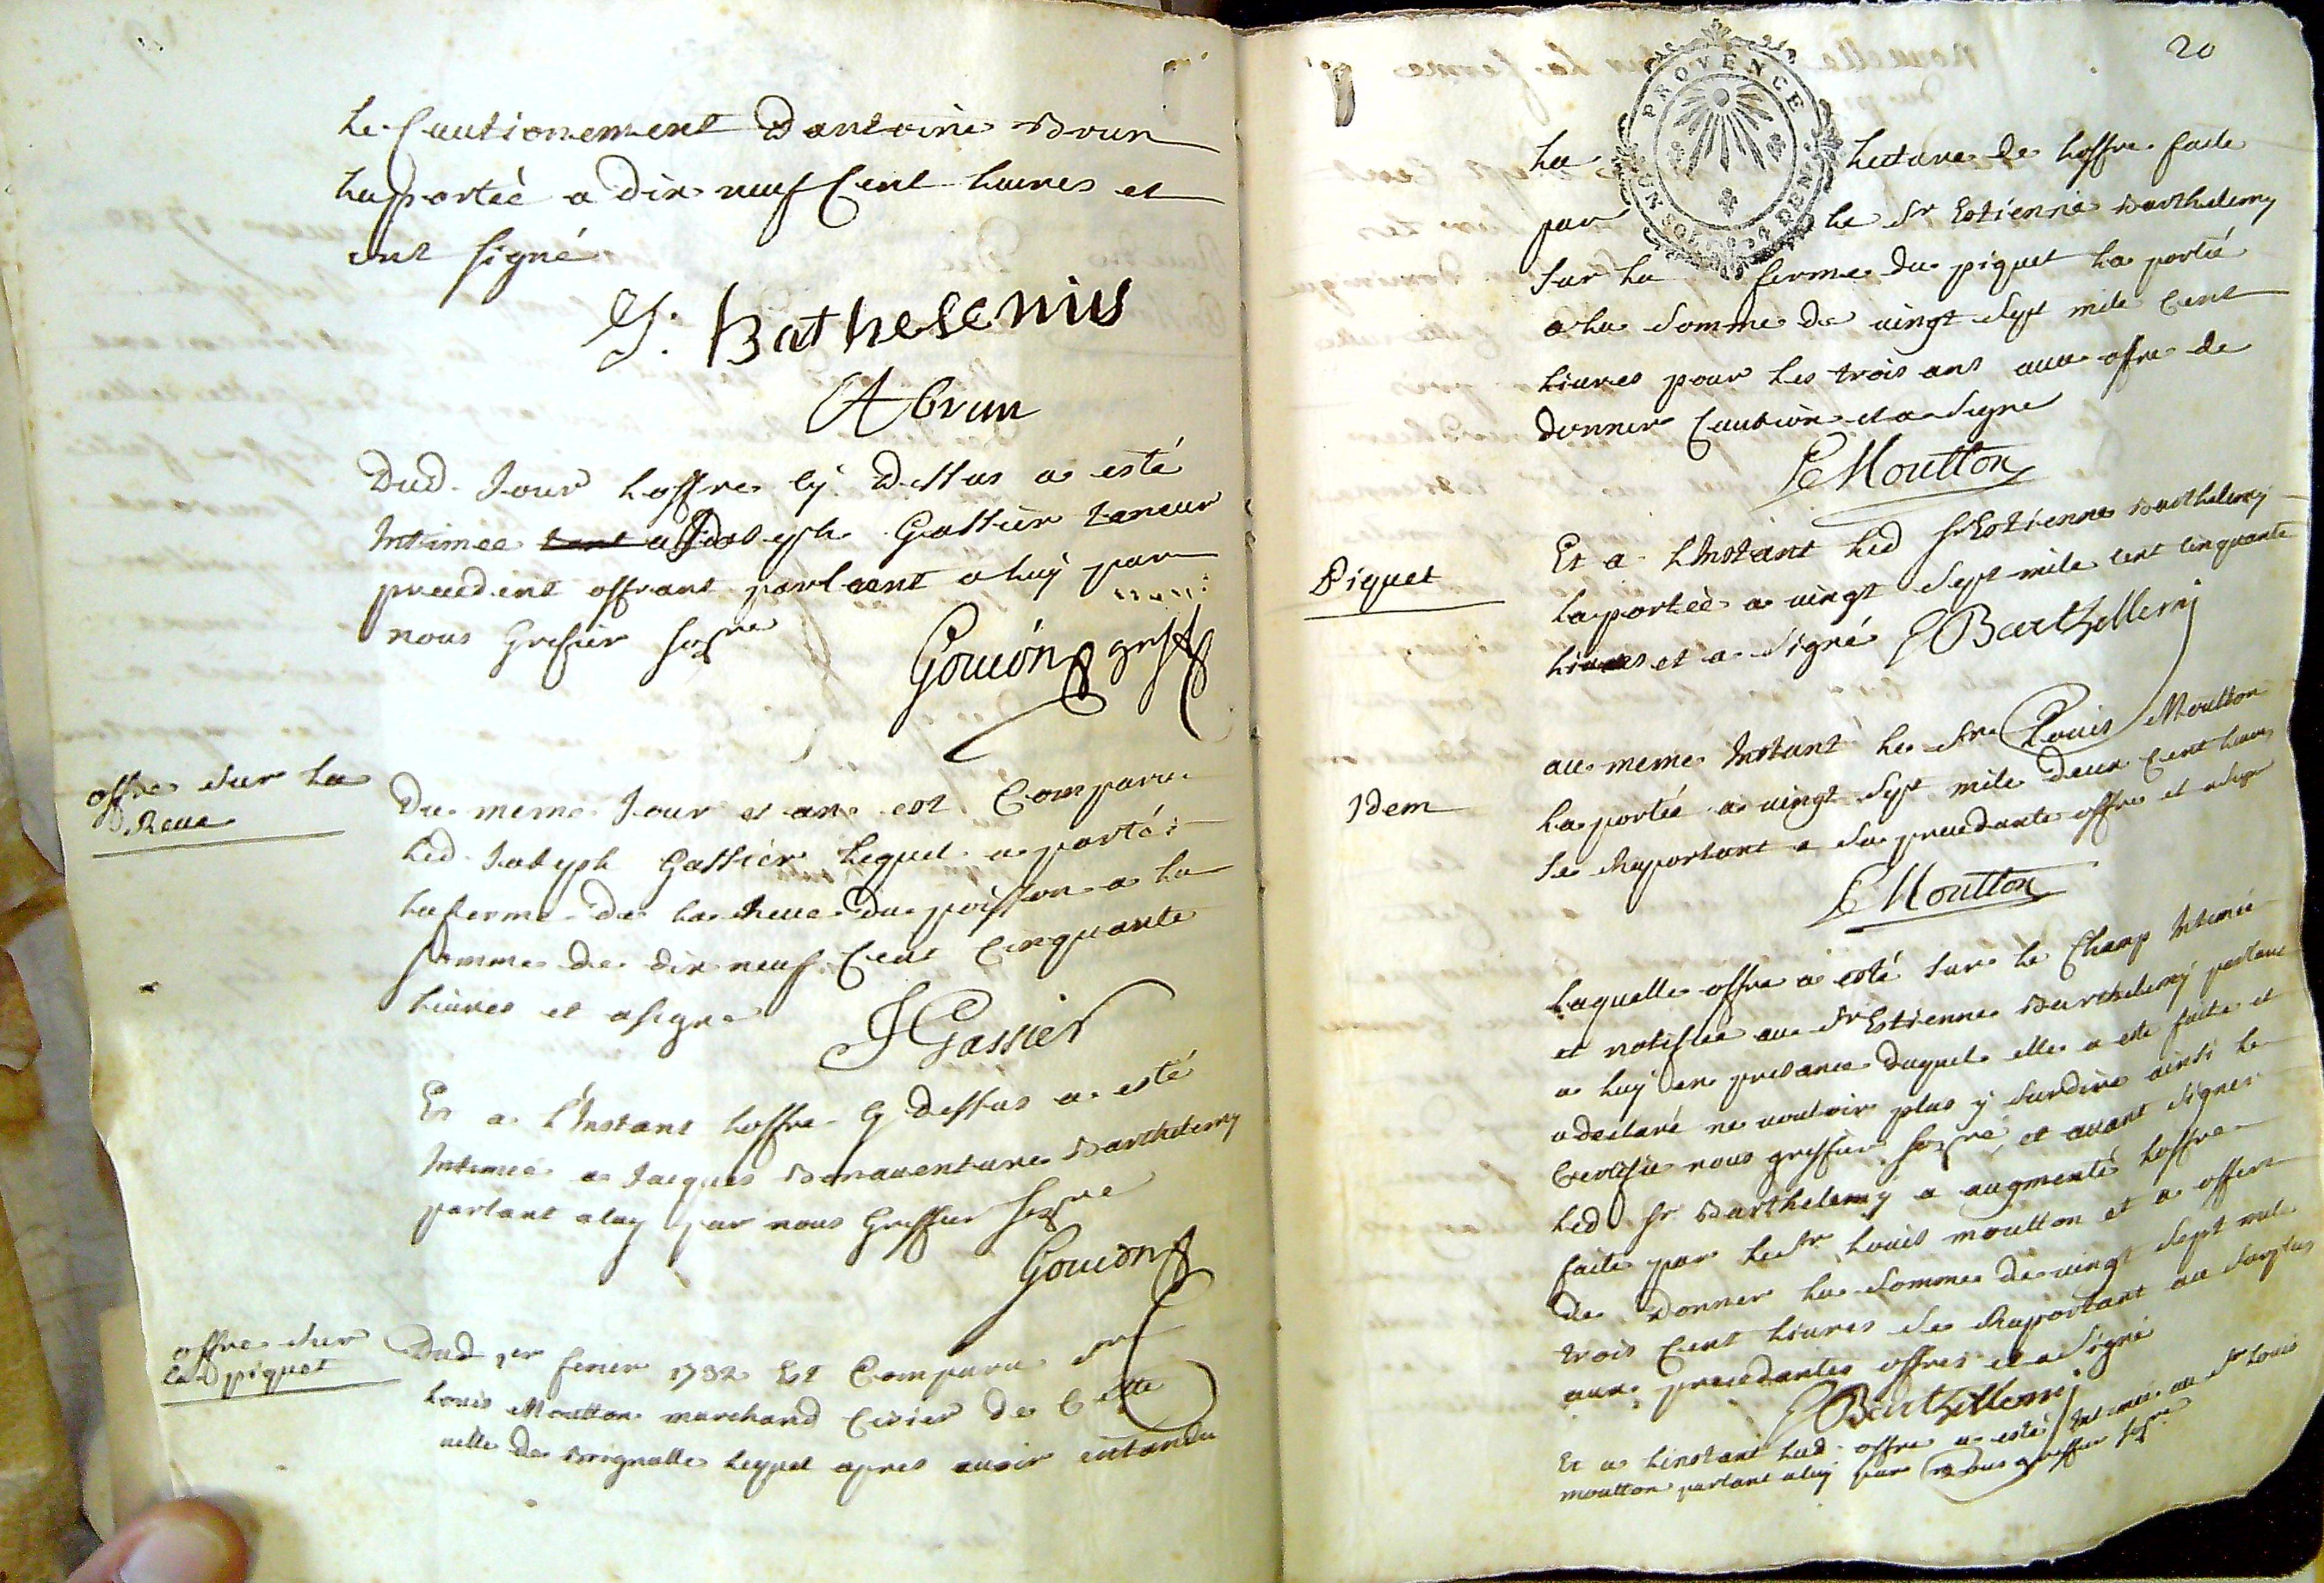 le Cautionement Dantoine Brun
la portée a dix neuf Cent liures et
ont signé
J. Bathelemis
A brun
Dud. Jour loffre cy dessus a esté
Intimée a Joseph Gassier taneur
precedent offrant parlant a luy par
nous Grefier sosne
Goujon greff
offre sur la
Reue
Du meme Jour et an est Comparu
led. Joseph Gassier lequel a porté
la ferme de la Reue du poisson a la
somme de dix neuf Cent Cinquante
liures et a signe
J Gassier
Et a L'Instant loffre cy dessus a esté
Intimée a Jacques Bonauenture Barthelemy
parlant a luy par nous Greffier sosne
Goujon
offre sur
le piquet
Dud 1er feurier 1732 Est Comparu sr
Louis Moutton marchand Cirier de Cette
uille de Brignolle lequel apres auoir entandu
20
PROVENCE
la lecture de loffre faite
par le Sr Estienne Barthelemy
sur la ferme du piquet la portée
a la somme de uingt sept mile Cent
liures pour les trois ans auec offre de
donner Caution et a signe
L Moutton
Piquet
Et a LInstant led Sr Estienne Barthelemy
la portée a uingt sept mile cent cinquante
liures et a signé E Barthellemi
Idem
au meme Instant le Sr Louis Moutton
la portée a uingt sept mile deux Cent liures
se Raportant a sa precedante offre et a signe
L Moutton
Laquelle offre a esté sur le Champ Intimée
et notifiée au Sr Estienne Barthelemy parlant
a luy en presance duquel elle a esté faite et
a declaré ne uouloir plus y surdire ainsi le
Certifie nous greffier sosné, et auant signer
led Sr Barthelemy a augmenté loffre
faite par le Sr Louis moutton et a offert
de donner la somme de uingt sept mile
trois Cent liures se Raportant au surplus
aux precedantes offres et a signé
E Barthellemi
Et a Linstant lad. offre a esté Intimée au Sr Louis
moutton parlant a luy par nous greffier sosne